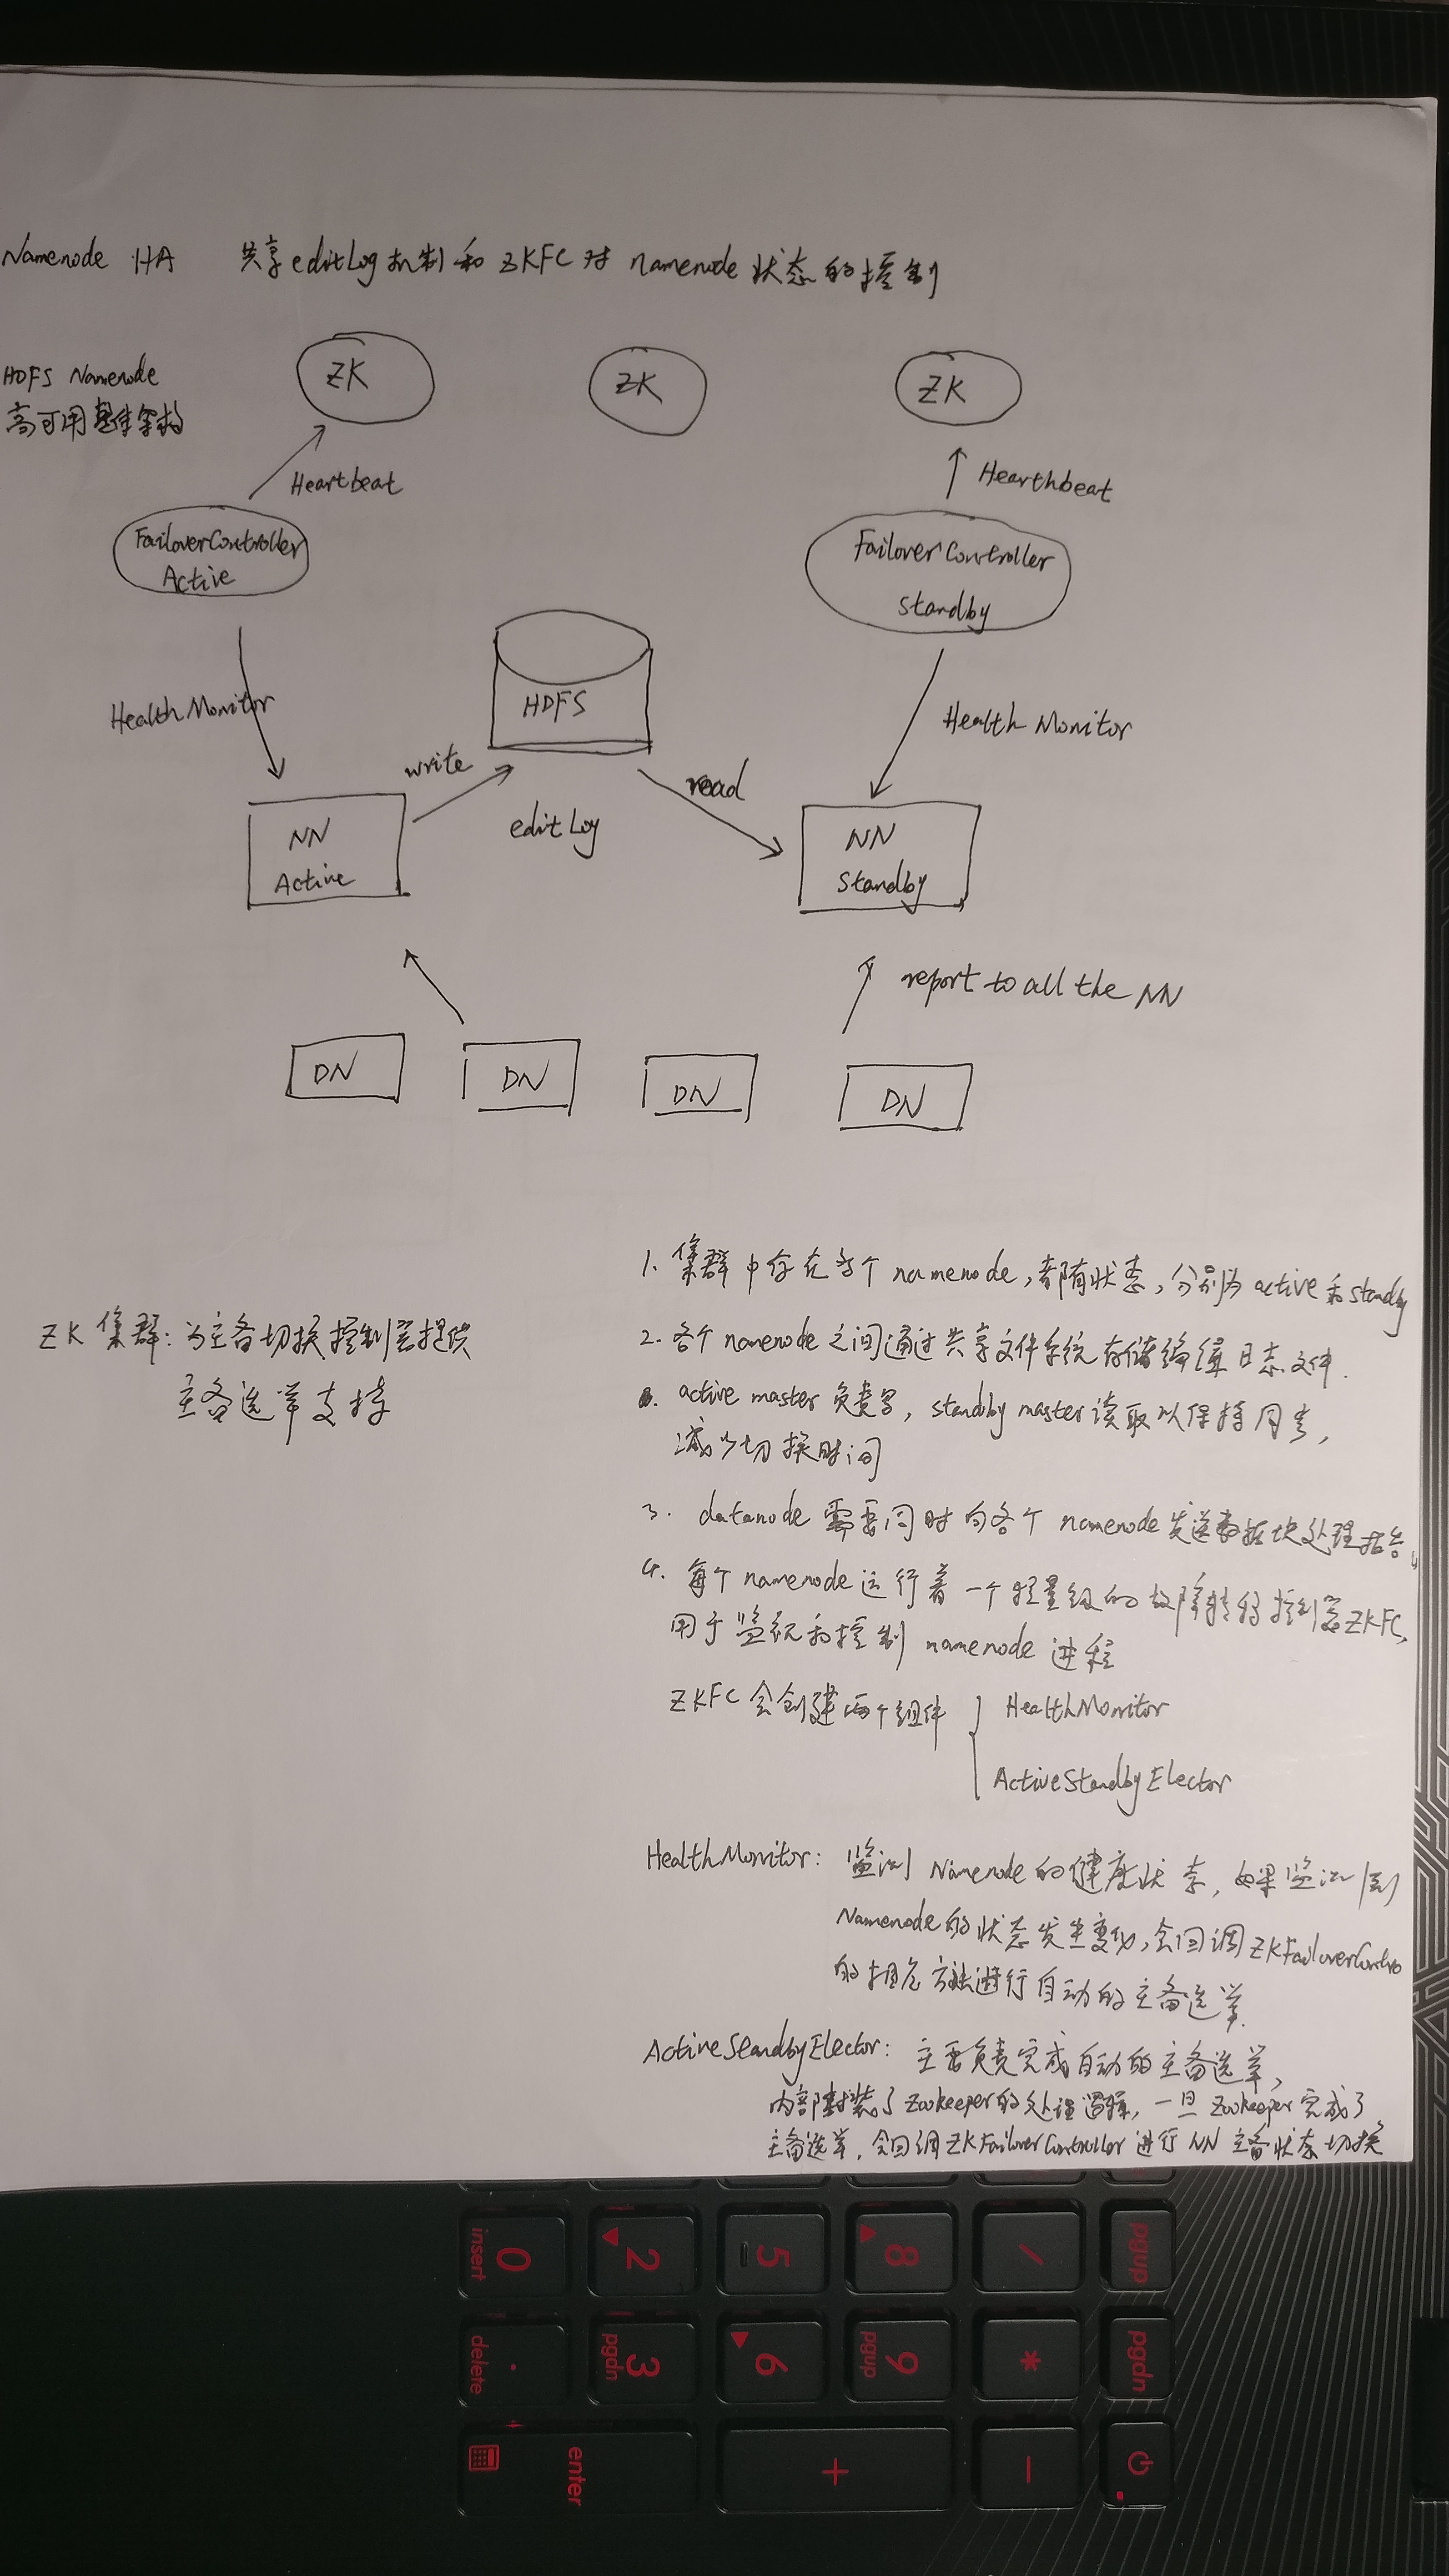 Namenode HA 共享editLog机制和ZKFC对namenode状态的控制
HDFS Namenode
高可用整体架构
ZK
ZK
ZK
Heartbeat
Hearthbeat
FailoverController
Active
FailoverController
standby
HealthMonitor
HDFS
Health Monitor
write
read
editLog
NN
Active
NN
Standby
report to all the NN
DN
DN
DN
DN
ZK集群:为主备切换控制器提供
主备选举支持
1. 集群中存在多个namenode,都有状态,分别为active和standby
2. 各个namenode之间通过共享文件系统存储编辑日志文件.
active master负责写, standby master读取以保持同步,
减少切换时间
3. datanode需要同时向各个namenode发送数据块处理报告,
4. 每个namenode运行着一个轻量级的故障转移控制器ZKFC,
用于监视和控制namenode进程
ZKFC会创建两个组件
HealthMonitor
ActiveStandbyElector
HealthMonitor: 监测Namenode的健康状态,如果监测到
Namenode的状态发生变动,会回调ZKFailoverContro
的相应方法进行自动的主备选举.
ActiveStandbyElector: 主要负责完成自动的主备选举,
内部封装了Zookeeper的处理逻辑,一旦Zookeeper完成了
主备选举,会回调ZKFailoverController进行NN主备状态切换
0
insert
2
5
8
/
pgup
.
delete
3
pgdn
6
9
pgup
*
pgdn
enter
+
−